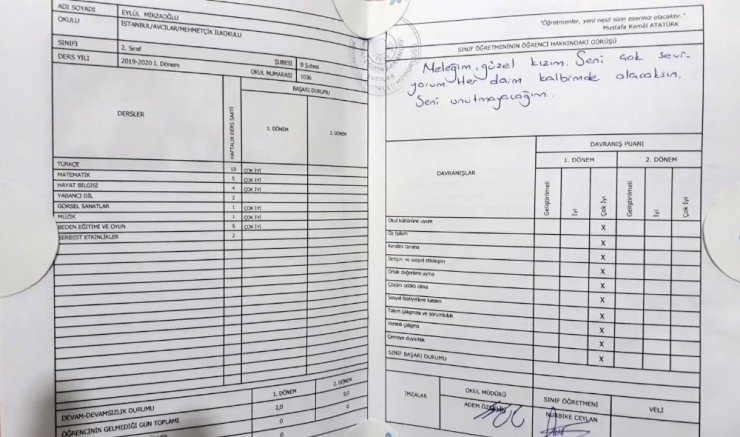 ADI SOYADI EYLÜL MİRZAOĞLU
OKULU İSTANBUL/AVCILAR/MEHMETÇİK İLKOKULU
SINIFI 2. Sınıf
DERS YILI 2019-2020 I. Dönem ŞUBESİ B Şubesi
OKUL NUMARASI 1036
BAŞARI DURUMU
DERSLER HAFTALIK DERS SAATİ 1. DÖNEM 2. DÖNEM
TÜRKÇE 10 ÇOK İYİ
MATEMATİK 5 ÇOK İYİ
HAYAT BİLGİSİ 4 ÇOK İYİ
YABANCI DİL 2
GÖRSEL SANATLAR 1 ÇOK İYİ
MÜZİK 1 ÇOK İYİ
BEDEN EĞİTİMİ VE OYUN 5 ÇOK İYİ
SERBEST ETKİNLİKLER 2
1. DÖNEM 2. DÖNEM
DEVAM-DEVAMSIZLIK DURUMU 2,0 0,0
ÖĞRENCİNİN GELMEDİĞİ GÜN TOPLAMI 0 0
0 0
"Öğretmenler, yeni nesil sizin eseriniz olacaktır."
Mustafa Kemâl ATATÜRK
SINIF ÖĞRETMENİNİN ÖĞRENCİ HAKKINDAKİ GÖRÜŞÜ
Meleğim, güzel kızım. Seni çok sevi-
yorum. Her daim kalbimde olacaksın.
Seni unutmayacağım..
DAVRANIŞ PUANI
DAVRANIŞLAR 1. DÖNEM 2. DÖNEM
Geliştirilmeli İyi Çok İyi Geliştirilmeli İyi Çok İyi
Okul kültürüne uyum X
Öz bakım X
Kendini tanıma X
İletişim ve sosyal etkileşim X
Ortak değerlere uyma X
Çözüm odaklı olma X
Sosyal faaliyetlere katılım X
Takım çalışması ve sorumluluk X
Verimli çalışma X
Çevreye duyarlılık X
SINIF BAŞARI DURUMU X
İMZALAR OKUL MÜDÜRÜ SINIF ÖĞRETMENİ VELİ
ADEM NURBİKE CEYLAN